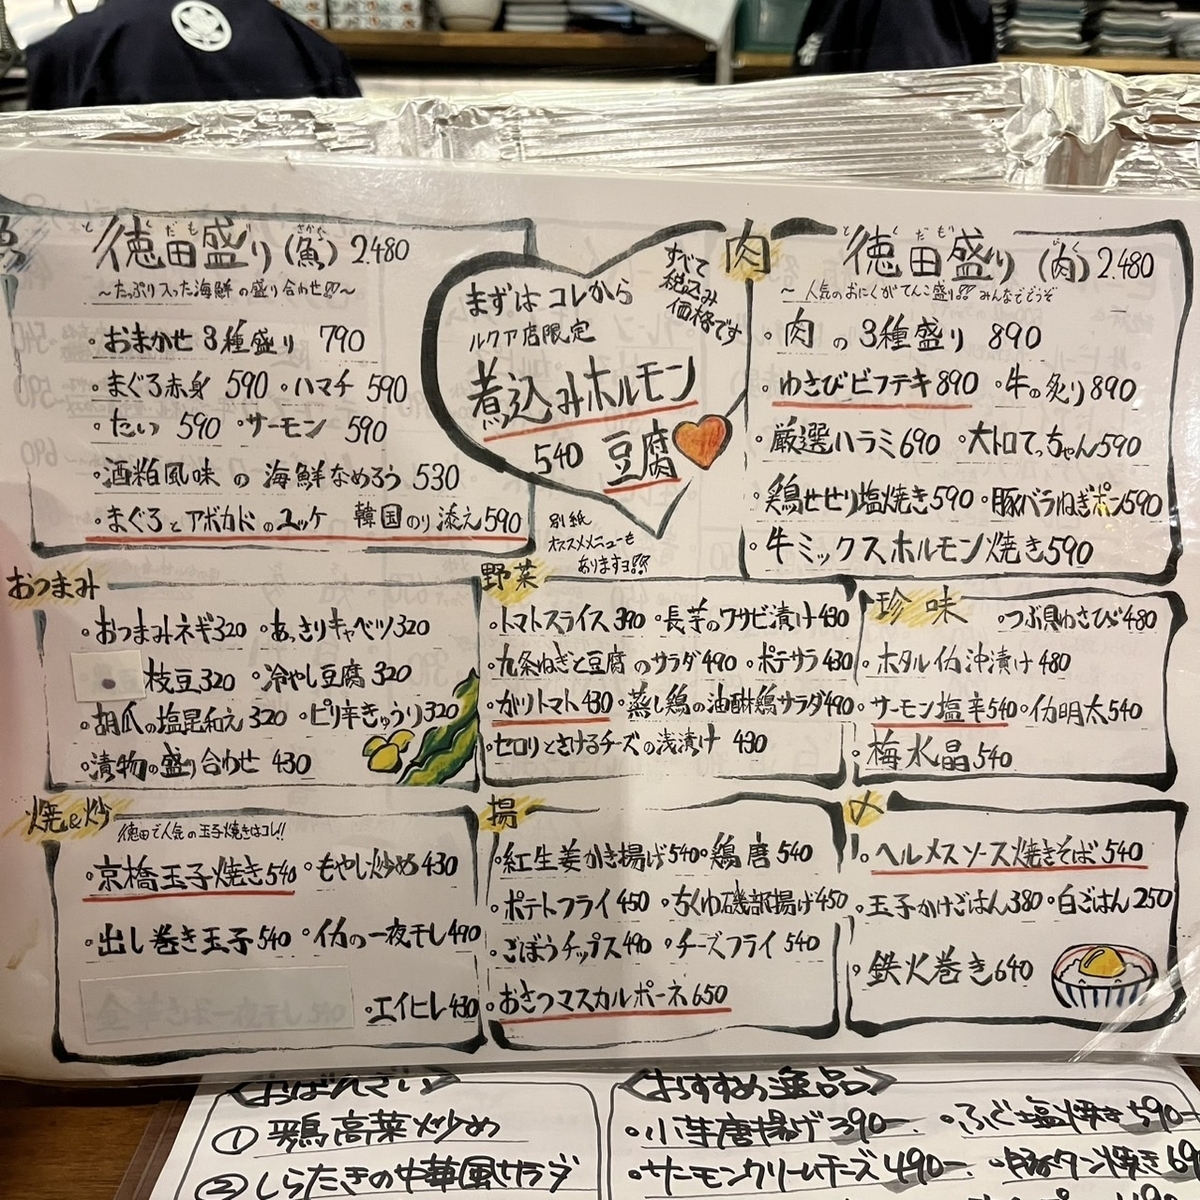 徳田盛り(魚) 2,480
とくだもり さかな
～たっぷり入った海鮮の盛り合わせ!!～
・おまかせ 3種盛り 790
・まぐろ赤身 590 ・ハマチ 590
・たい 590 ・サーモン 590
・酒粕風味 の 海鮮なめろう 530
・まぐろとアボカドのユッケ 韓国のり添え 590
まずは コレから
ルクア店限定
煮込みホルモン
540 豆腐
すべて
税込み
価格です
別紙
オススメメニューも
ありますヨ!!
肉
徳田盛り(肉) 2,480
とくだもり にく
～人気のおにくがてんこ盛り!! みんなでどうぞ
・肉 の 3種盛り 890
・わさびビフテキ 890 ・牛の炙り 890
・厳選ハラミ 690 ・大トロてっちゃん 590
・鶏せせり塩焼き 590 ・豚バラねぎポン 590
・牛ミックスホルモン焼き 590
おつまみ
・おつまみネギ 320 ・あっさりキャベツ 320
・枝豆 320 ・冷やし豆腐 320
・胡瓜の塩昆和え 320 ・ピリ辛きゅうり 320
・漬物の盛り合わせ 430
野菜
・トマトスライス 390 ・長芋のワサビ漬け 430
・九条ねぎと豆腐のサラダ 490 ・ポテサラ 430
・ガリトマト 430 ・蒸し鶏の油酎鶏サラダ 490
・セロリとさけるチーズの浅漬け 430
珍味
・つぶ貝わさび 480
・ホタルイカ沖漬け 480
・サーモン塩辛 540 ・イカ明太 540
・梅水晶 540
焼&炒
徳田で人気の玉子焼きはコレ!!
・京橋玉子焼き 540 ・もやし炒め 430
・出し巻き玉子 540 ・イカの一夜干し 490
・エイヒレ 430
揚
・紅生姜かき揚げ 540 ・鶏唐 540
・ポテトフライ 450 ・ちくわ磯部揚げ 450
・ごぼうチップス 490 ・チーズフライ 540
・おさつマスカルポーネ 650
〆
・ヘルメスソース焼きそば 540
・玉子かけごはん 380 ・白ごはん 250
・鉄火巻き 640
<おばんざい>
① 鶏高菜炒め
② しらたきの中華風サラダ
<おすすめ逸品>
・小芋唐揚げ 390- ・ふぐ塩焼き 590-
・サーモンクリームチーズ 490-